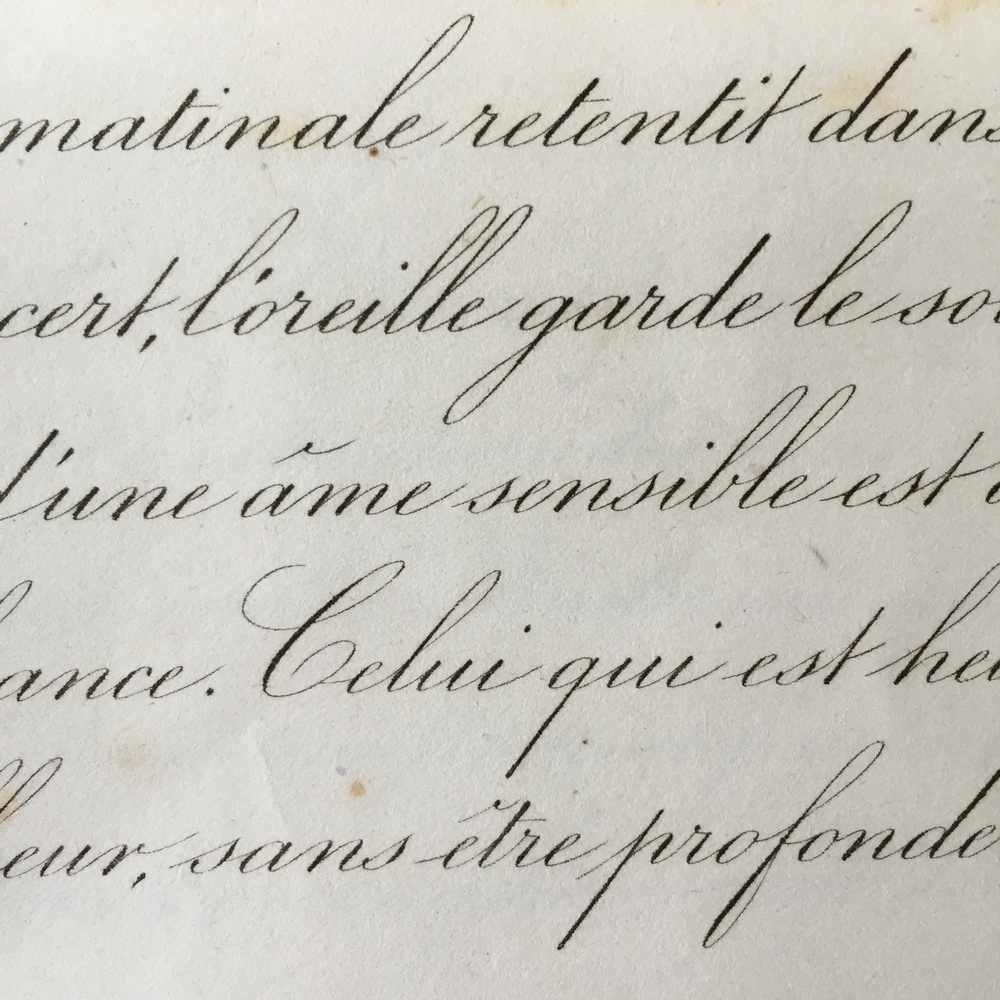 matinale retentit dans
cert, l'oreille garde le sou
d'une âme sensible est
lance. Celui qui est heu
leur, sans être profonde